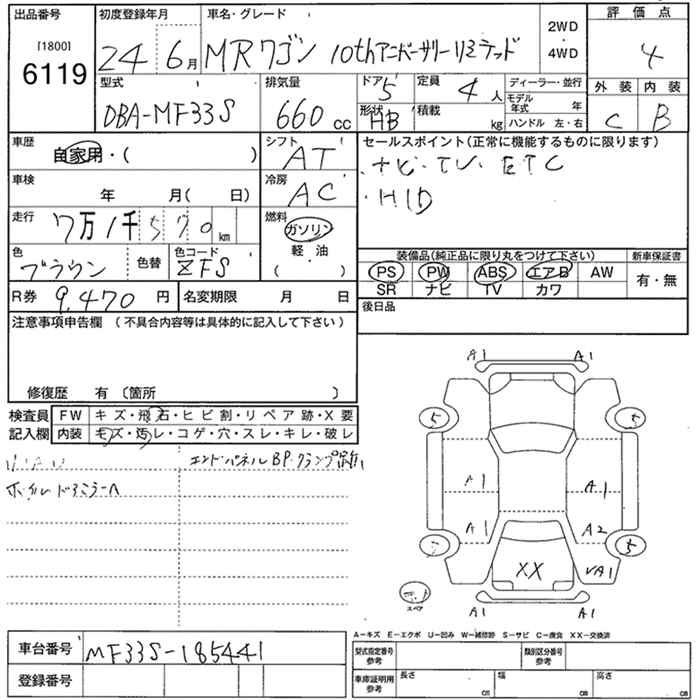 出品番号
[1800]
6119
初度登録年月
24年6月
車名・グレード
MRワゴン 10thアニバーサリーリミテッド
2WD
・
4WD
評価点
4
外装 内装
C B
型式
DBA-MF33S
排気量
660cc
ドア
5
形状
HB
定員
4人
積載
kg
ディーラー・並行
モデル年式 年
ハンドル 左・右
車歴
自家用・( )
シフト
AT
車検
年 月( 日)
冷房
AC
走行
7万1千570km
燃料
ガソリン
軽・油
( )
色
ブラウン
色替
色コード
ZFS
R券 9,470円
名変期限 月 日
セールスポイント(正常に機能するものに限ります)
・ナビ・TV・ETC
・HID
装備品(純正品に限り丸をつけて下さい)
PS PW ABS エアB AW
SR ナビ TV カワ
新車保証書
有・無
後日品
注意事項申告欄(不具合内容等は具体的に記入して下さい)
修復歴 有〔箇所 〕
検査員記入欄
FW キズ・飛石・ヒビ割・リペア跡・X要
内装 キズ・汚レ・コゲ・穴・スレ・キレ・破レ
エンドパネルBP・クランプ跡
A1 A1
5 5
A1 A1
A1 A2
5
XX
A1
スペア
A1 A1
A-キズ E-エクボ U-凹み W-補修跡 S-サビ C-腐食 XX-交換済
車台番号 MF33S-185441
登録番号
型式指定番号
参考
類別区分番号
参考
車庫証明用
参考
長さ cm
幅 cm
高さ cm